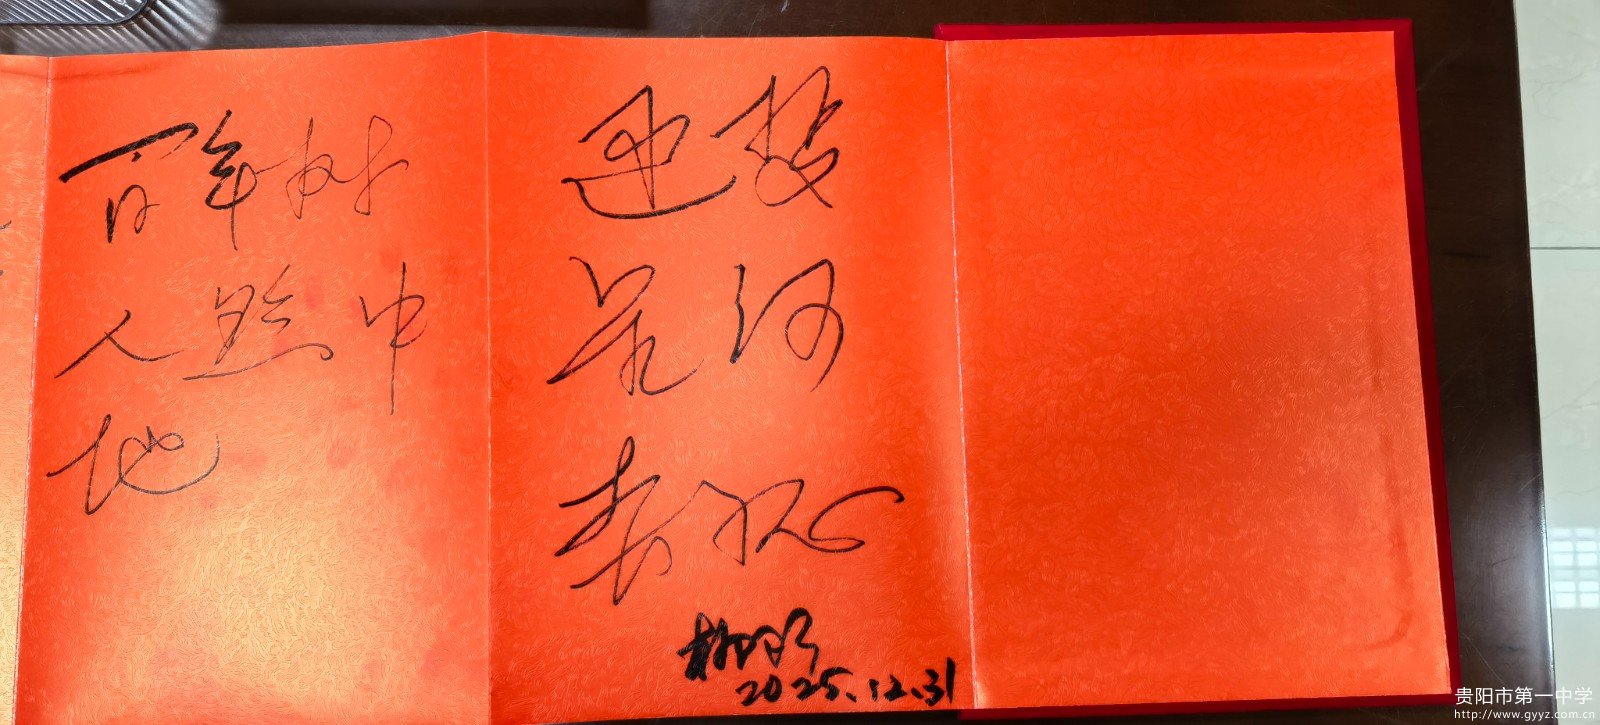 百年树
人黔中
地
梦
星河
初心
2025.12.31
贵阳市第一中学
http://www.gyyz.com.cn